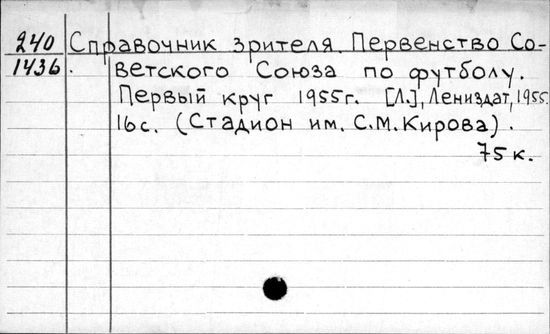 240 Справочник зрителя. Первенство Со-
1436 ветского Союза по футболу.
Первый круг 1955г. [Л.], Лениздат, 1955.
16с. (Стадион им. С.М.Кирова).
75к.